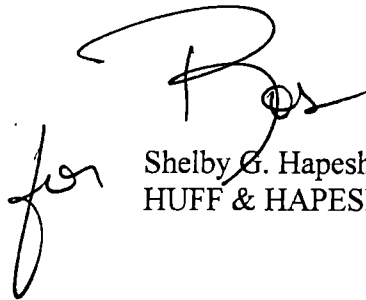 for
Shelby G. Hapesh
HUFF & HAPESH